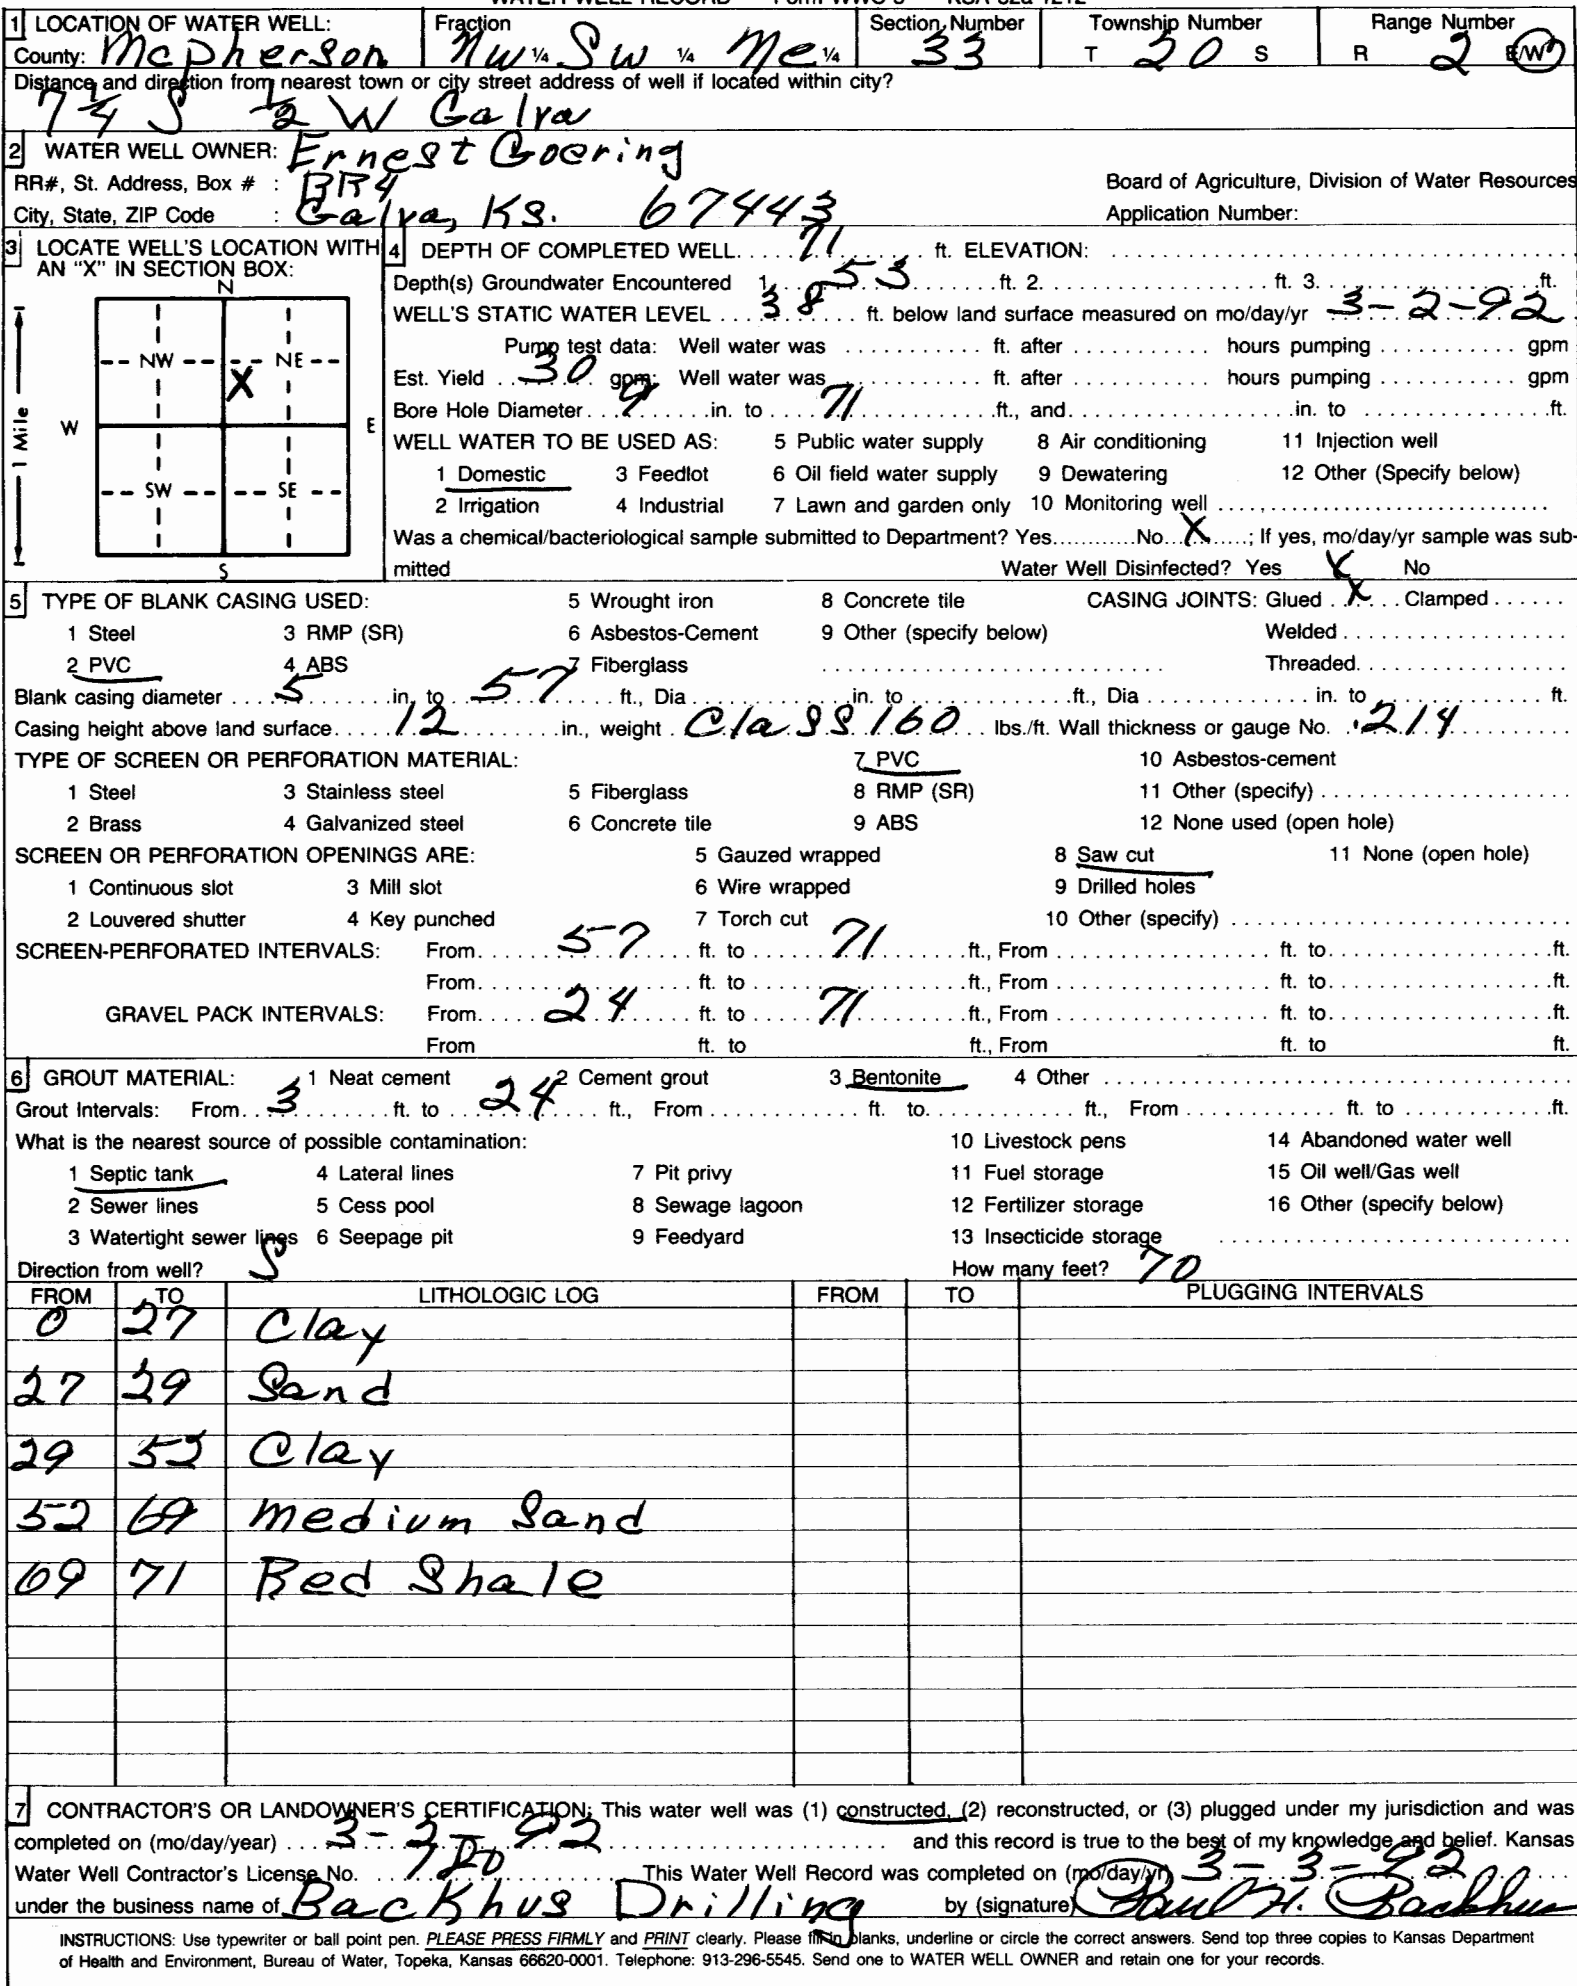 WATER WELL RECORD Form WWC-5 KSA 82a-1212
1 LOCATION OF WATER WELL: Fraction Section Number Township Number Range Number
County: McPherson NW ¼ SW ¼ Ne ¼ 33 T 20 S R 2 E/W
Distance and direction from nearest town or city street address of well if located within city?
7 1/4 S 1/2 W Galva
2 WATER WELL OWNER: Ernest Goering
RR#, St. Address, Box # : RR4 Board of Agriculture, Division of Water Resources
City, State, ZIP Code : Galva, Ks. 67443 Application Number:
3 LOCATE WELL'S LOCATION WITH AN "X" IN SECTION BOX:
N
NW NE
X
W E
SW SE
S
1 Mile
4 DEPTH OF COMPLETED WELL 71 ft. ELEVATION:
Depth(s) Groundwater Encountered 1. 53 ft. 2. ft. 3. ft.
WELL'S STATIC WATER LEVEL 38 ft. below land surface measured on mo/day/yr 3-2-92
Pump test data: Well water was ft. after hours pumping gpm
Est. Yield 30 gpm: Well water was ft. after hours pumping gpm
Bore Hole Diameter 9 in. to 71 ft., and in. to ft.
WELL WATER TO BE USED AS: 5 Public water supply 8 Air conditioning 11 Injection well
1 Domestic 3 Feedlot 6 Oil field water supply 9 Dewatering 12 Other (Specify below)
2 Irrigation 4 Industrial 7 Lawn and garden only 10 Monitoring well
Was a chemical/bacteriological sample submitted to Department? Yes No X ; If yes, mo/day/yr sample was sub-
mitted Water Well Disinfected? Yes X No
5 TYPE OF BLANK CASING USED: 5 Wrought iron 8 Concrete tile CASING JOINTS: Glued X Clamped
1 Steel 3 RMP (SR) 6 Asbestos-Cement 9 Other (specify below) Welded
2 PVC 4 ABS 7 Fiberglass Threaded
Blank casing diameter 5 in. to 57 ft., Dia in. to ft., Dia in. to ft.
Casing height above land surface 12 in., weight Class 160 lbs./ft. Wall thickness or gauge No. .214
TYPE OF SCREEN OR PERFORATION MATERIAL: 7 PVC 10 Asbestos-cement
1 Steel 3 Stainless steel 5 Fiberglass 8 RMP (SR) 11 Other (specify)
2 Brass 4 Galvanized steel 6 Concrete tile 9 ABS 12 None used (open hole)
SCREEN OR PERFORATION OPENINGS ARE: 5 Gauzed wrapped 8 Saw cut 11 None (open hole)
1 Continuous slot 3 Mill slot 6 Wire wrapped 9 Drilled holes
2 Louvered shutter 4 Key punched 7 Torch cut 10 Other (specify)
SCREEN-PERFORATED INTERVALS: From 57 ft. to 71 ft., From ft. to ft.
From ft. to ft., From ft. to ft.
GRAVEL PACK INTERVALS: From 24 ft. to 71 ft., From ft. to ft.
From ft. to ft., From ft. to ft.
6 GROUT MATERIAL: 1 Neat cement 2 Cement grout 3 Bentonite 4 Other
Grout Intervals: From 3 ft. to 24 ft., From ft. to ft., From ft. to ft.
What is the nearest source of possible contamination: 10 Livestock pens 14 Abandoned water well
1 Septic tank 4 Lateral lines 7 Pit privy 11 Fuel storage 15 Oil well/Gas well
2 Sewer lines 5 Cess pool 8 Sewage lagoon 12 Fertilizer storage 16 Other (specify below)
3 Watertight sewer lines 6 Seepage pit 9 Feedyard 13 Insecticide storage
Direction from well? S How many feet? 70
FROM TO LITHOLOGIC LOG FROM TO PLUGGING INTERVALS
0 27 Clay
27 29 Sand
29 52 Clay
52 69 medium Sand
69 71 Red Shale
7 CONTRACTOR'S OR LANDOWNER'S CERTIFICATION: This water well was (1) constructed, (2) reconstructed, or (3) plugged under my jurisdiction and was
completed on (mo/day/year) 3-2-92 and this record is true to the best of my knowledge and belief. Kansas
Water Well Contractor's License No. This Water Well Record was completed on (mo/day/yr) 3-3-92
under the business name of Backhus Drilling by (signature) Paul H. Backhus
INSTRUCTIONS: Use typewriter or ball point pen. PLEASE PRESS FIRMLY and PRINT clearly. Please fill in blanks, underline or circle the correct answers. Send top three copies to Kansas Department
of Health and Environment, Bureau of Water, Topeka, Kansas 66620-0001. Telephone: 913-296-5545. Send one to WATER WELL OWNER and retain one for your records.